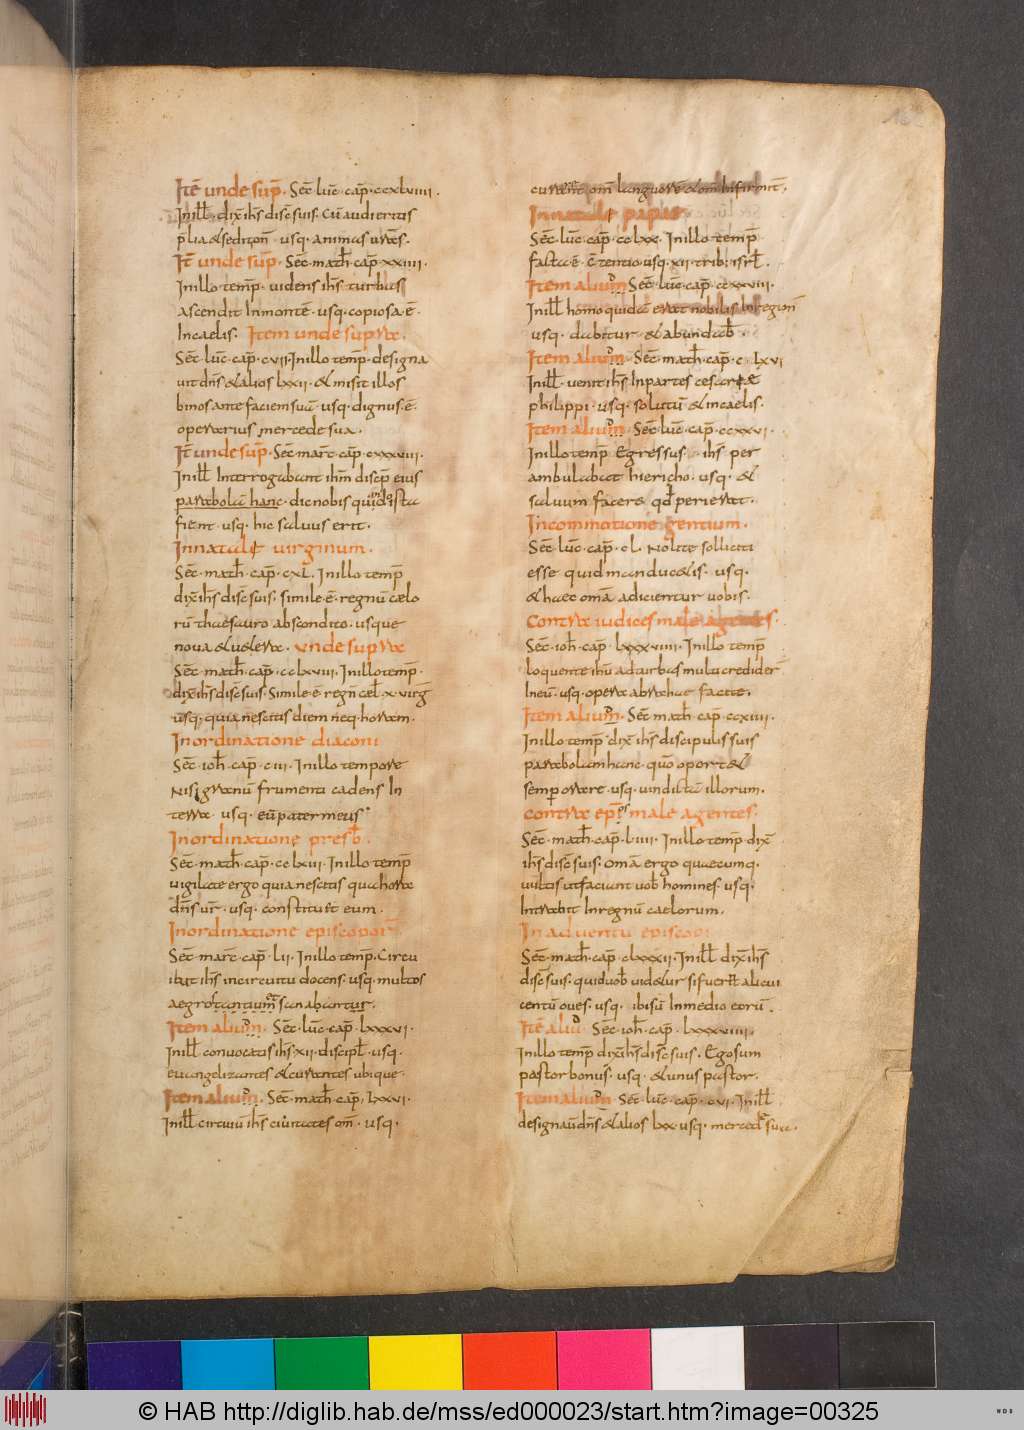 Itē unde sup̄. Sec̄ luc̄ cap̄ ccxlviii.
Inill̄. dix̄ ih̄s disc̄ suis. Cū audieritis
p̄lia & sedition̄ usq. animas ur̄as.
It̄ unde sup̄. Sec̄ math̄ cap̄ xxiiii.
Inillo temp̄. videns ih̄s turbas
Ascendit Inmontē. usq. copiosa ē
Incaelis. Item unde supra.
Sec̄ luc̄ cap̄ cvii. Inillo temp̄. designa
uit dn̄s & alios lxxii. & misit illos
binos ante faciem suā. usq. dignus. ē.
operarius mercede sua.
It̄ unde sup̄. Sec̄ marc̄ cap̄ cxxxviii.
Inill̄ Interrogabant ih̄m discip̄ eius
parabolā hanc. dic nobis quando ista
fient usq. hic saluus erit.
Innatale virginum.
Sec̄ math̄ cap̄ cxl. Inillo temp̄
dix̄ ih̄s disc̄ suis. simile. ē. regnū caelo
rū thaesauro abscondito. usque
noua & uetera. unde supra
Sec̄ math̄ cap̄ cclxviii. Inillo temp̄.
dix̄ ih̄s disc̄ suis. Simile. ē regn̄ cael̄. x. virḡ
usq. quia nescitis diem neq. horam.
Inordinatione diaconi
Sec̄ ioh̄ cap̄ ciii. Inillo tempore
Nisi granū frumenti cadens In
terra usq. eū pater meus
Inordinatione presb̄.
Sec̄ math̄ cap̄ cclxiii. Inillo temp̄
uigilate ergo quia nescitis qua hora
dn̄s ur̄. usq. constituit eum.
Inordinatione episcopor̄.
Sec̄ marc̄ cap̄ lii. Inillo temp̄. Circu
ibat ih̄s incircuitu docens. usq. multos
aegrotantium sanabantur.
Item alium. Sec̄ luc̄ cap̄ lxxxvi.
Inill̄ convocatis ih̄s. xii. discipl̄. usq.
euangelizantes & curantes ubique.
Item alium. Sec̄ math̄ cap̄ lxxvi.
Inill̄ circuiū ih̄s ciuitates om̄. usq.
curant̄ om̄ languore & om̄ Infirmit̄.
Innatale papae
Sec̄ luc̄ cap̄ cclxx. Inillo temp̄
facta ē c̄tentio usq. xii. trib. isrl̄.
Item alium Sec̄ luc̄ cap̄ ccxxviii.
Inill̄ homo quidā erat nobilis Inregion̄
usq. dabitur & abundab̄.
Item alium. Sec̄ math̄ cap̄ clxvi
Inill̄. uenit ih̄s Inpartes cesareae
philippi. usq. solutū & incaelis.
Item alium. Sec̄ luc̄ cap̄ ccxxvi.
Inillo temp̄ Egressus ih̄s per
ambulabat hiericho. usq. &
saluum facere qd̄ perierat.
Incommotione gentium.
Sec̄ luc̄ cap̄ cl. Nolite solliciti
esse quid manducetis. usq.
& haec om̄a adicientur uobis.
Contra iudices male agentes.
Sec̄ ioh̄ cap̄ lxxxviiii. Inillo temp̄
loquente ih̄u ad turbas multi crediderū
Ineū. usq. opera abrahae facite.
Item alium. Sec̄ math̄ cap̄ ccxiiii.
Inillo temp̄ dix̄ ih̄s discipulis suis
parabolam hanc. quō oportet
semp̄ orare. usq. uindictā illorum.
Contra ep̄os male agentes.
Sec̄ math̄ cap̄. liiii. Inillo temp̄ dix̄
ih̄s disc̄ suis. Om̄a ergo quaecumq.
uultis ut faciant uob̄ homines usq.
Intrabit Inregnū caelorum.
In aduentu episcopi
Sec̄ math̄ cap̄ clxxxii. Inill̄ dix̄ ih̄s
disc̄ suis. quid uob̄ uidetur si fuerit alicui
centū oues. usq. ibisū Inmedio eorū.
Itē aliū. Sec̄ ioh̄ cap̄ lxxxviiii.
Inillo temp̄ dix̄ ih̄s disc̄ suis. Ego sum
pastor bonus. usq. & unus pastor.
Item alium. Sec̄ luc̄ cap̄ cvi. Inill̄
designauit dn̄s & alios lxx. usq. mercede sua.
© HAB http://diglib.hab.de/mss/ed000023/start.htm?image=00325
WDB